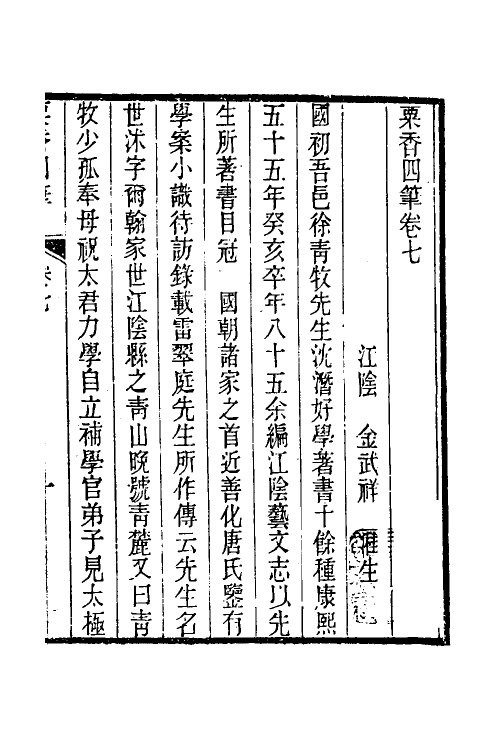 粟香四筆卷七
江陰　金武祥　溎生
國初吾邑徐青牧先生沈潛好學著書十餘種康熙
五十五年癸亥卒年八十五余編江陰藝文志以先
生所著書目冠　國朝諸家之首近善化唐氏鑒有
學案小識待訪錄載雷翠庭先生所作傳云先生名
世沐字爾翰家世江陰縣之青山晚號青麓又曰青
牧少孤奉母祝太君力學自立補學官弟子見太極
粟香四筆　卷七　一